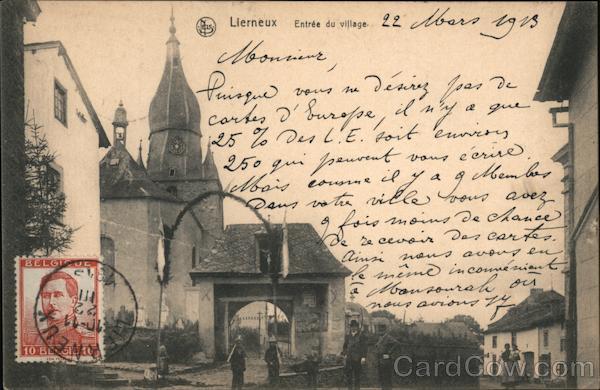 Lierneux Entrée du village. 22 Mars 1913
Monsieur,
Puisque vous ne désirez pas de
cartes d'Europe, il n'y a que
25% des L.E. soit environ
250 qui peuvent vous écrire.
Mais comme il y a 9 Membres
dans votre ville vous avez
9 fois moins de chance
de recevoir des cartes.
Ainsi nous avons eu
le même inconvénient
à Mansourah où
nous avions 17
BELGIQUE
10 BELGIË 10
CardCow.com